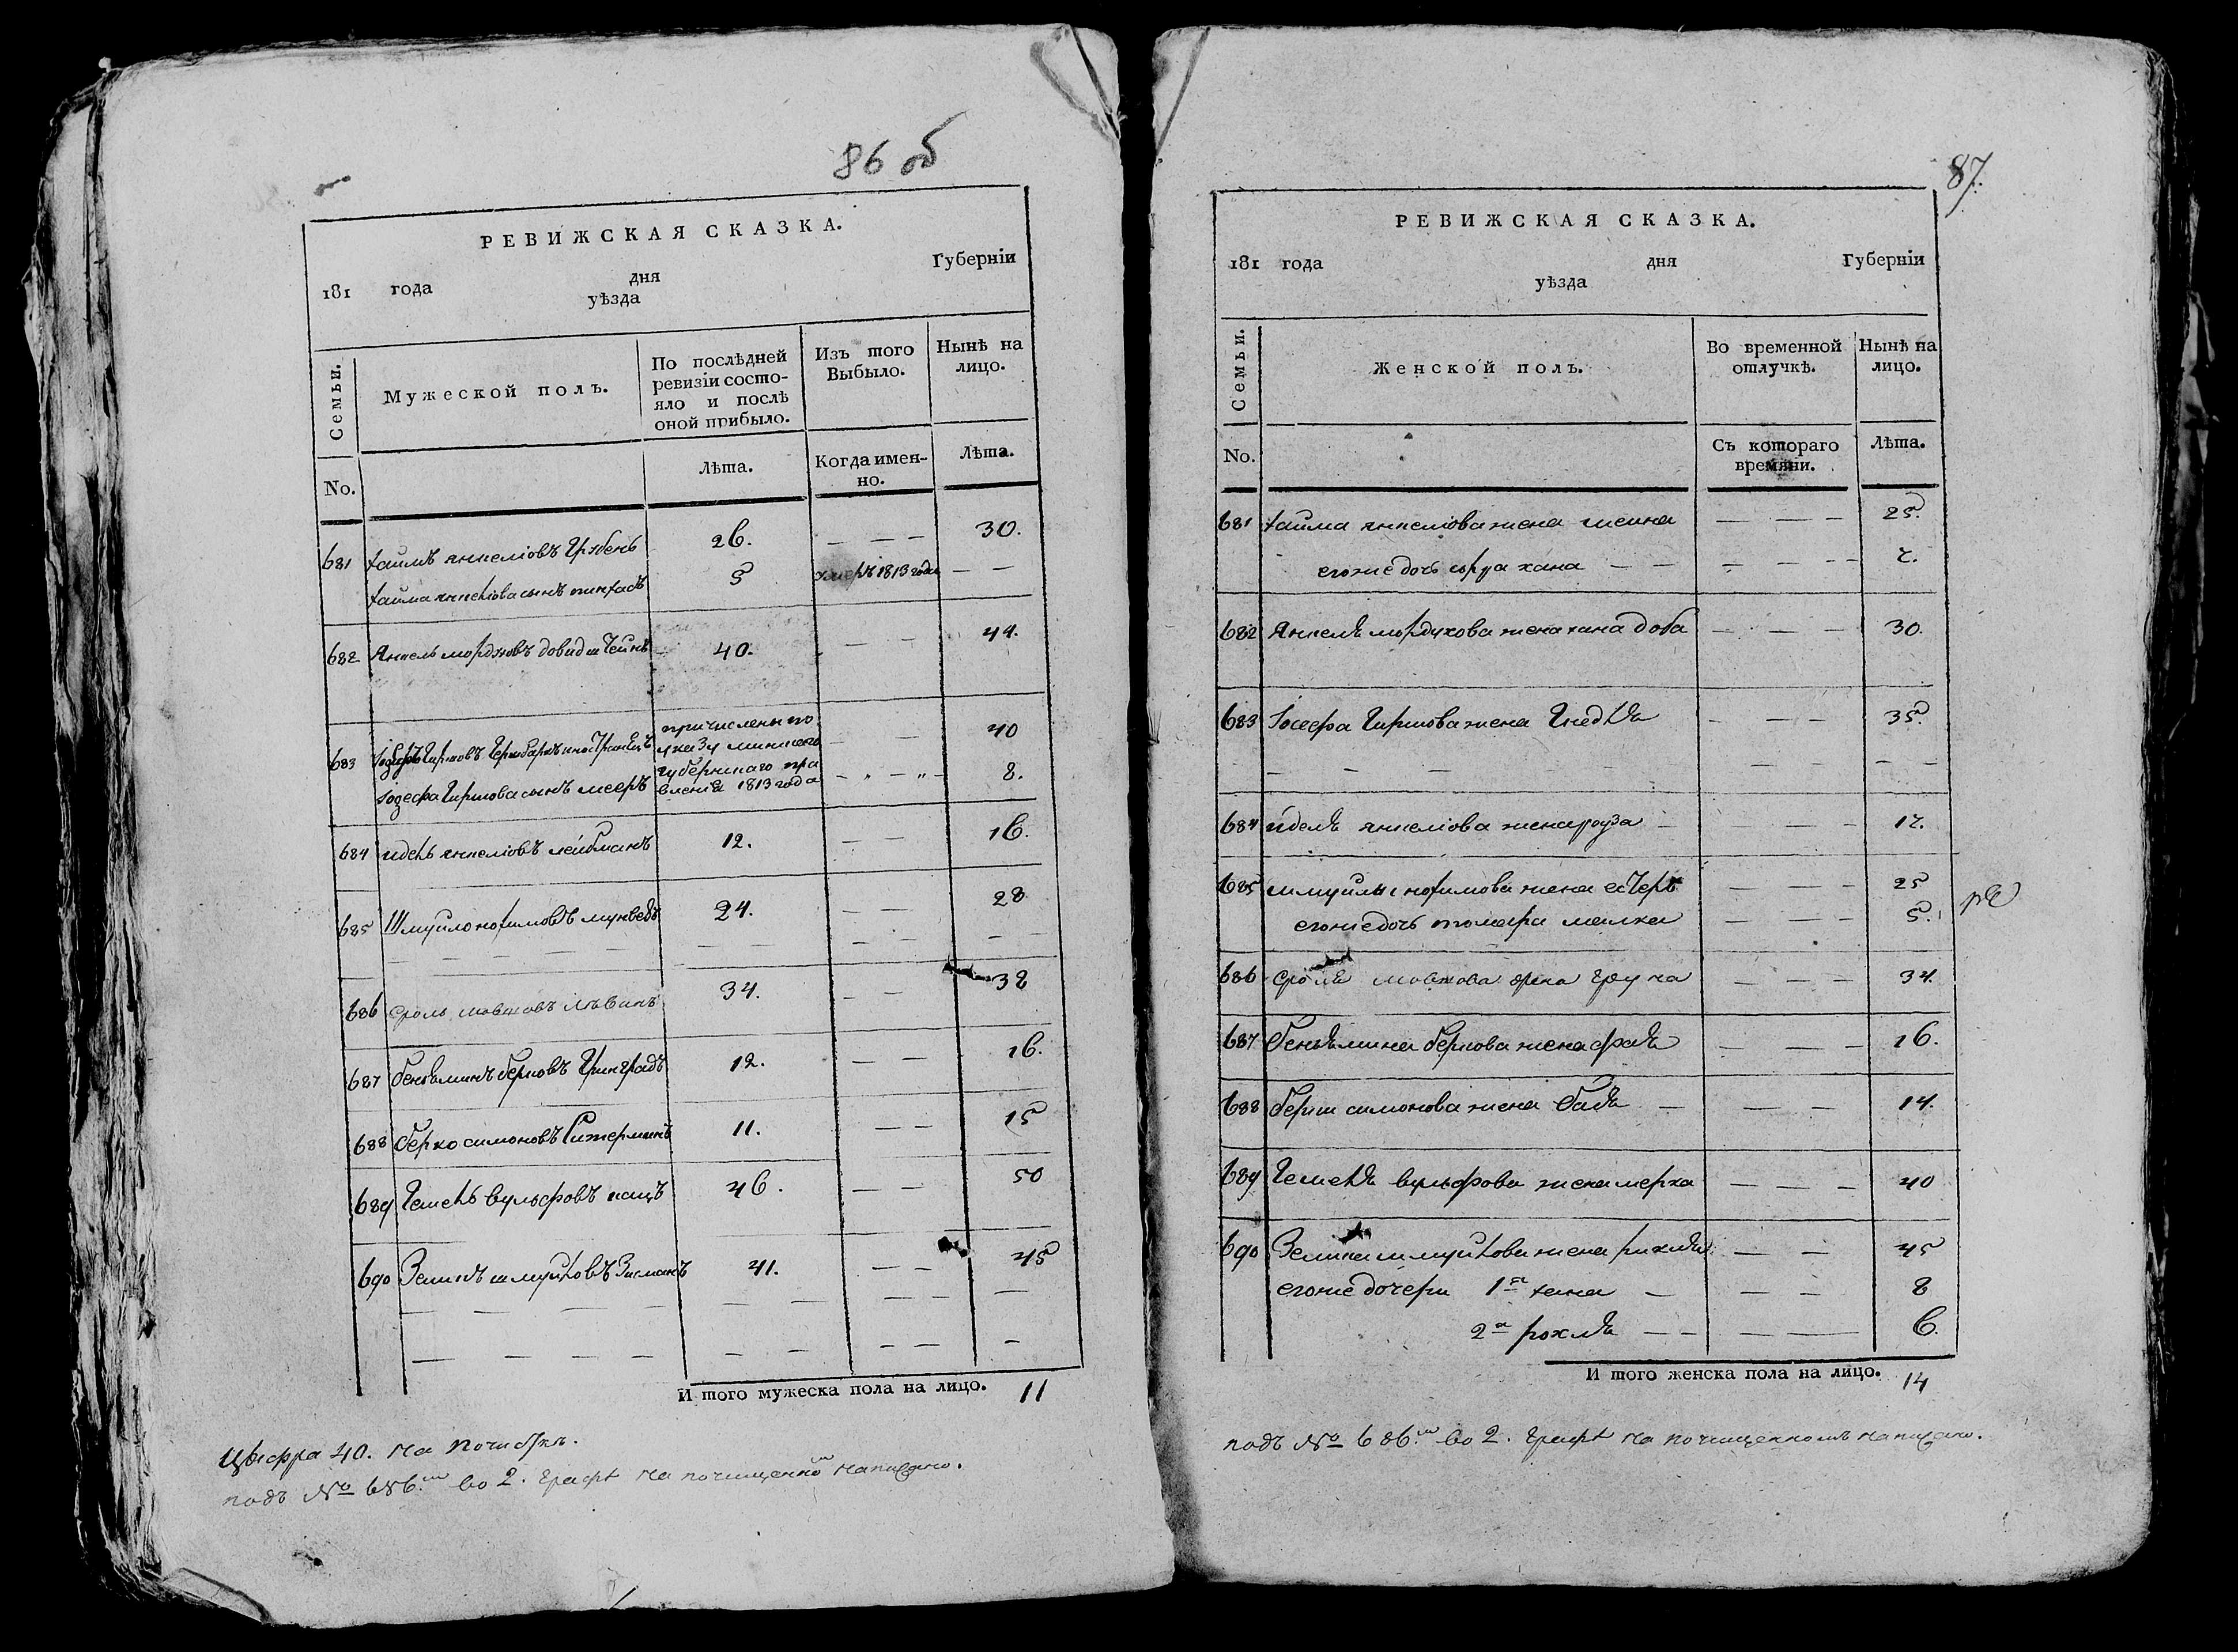 86 об
РЕВИЖСКАЯ СКАЗКА.
181 года дня Губерніи
уѣзда
Семьи.
Мужеской полъ.
По послѣдней ревизіи состояло и послѣ оной прибыло.
Изъ того Выбыло.
Нынѣ на лицо.
No.
Лѣта.
Когда именно.
Лѣта.
681 хаимъ янкеліовъ 26. — — — 30.
хаима янкеліова сынъ 5 умеръ 1813 года — —
682 Янкель мордховъ 40. — 44.
683 Гиршовъ причислены по указу минского — — 40
Іозефа Гиршова сынъ мееръ губернского правленія 1813 года — „ — „ 8.
684 идель янкеліовъ лейбманъ 12. — — 16.
685 Шмуйло нохимовъ 24. — — 28
— — — — — — — —
686 сроль мовшовъ лѣвинъ 34. — — 38
687 бенѣминъ берковъ Гринградъ 12. — — 16.
688 берко симоновъ 11. — — 15
689 Гешель вульфовъ кацъ 46. — — 50
690 Зеликъ шмуйловъ Зисманъ 41. — — 45
— — — — — — — — —
— — — — — — — — —
И того мужеска пола на лицо. 11
Цыфра 40. на почисткѣ.
подъ № 686.м во 2. графѣ на почищенном написано.
87.
РЕВИЖСКАЯ СКАЗКА.
181 года дня Губерніи
уѣзда
Семьи.
Женской полъ.
Во временной отлучкѣ.
Нынѣ на лицо.
No.
Съ котораго времяни.
Лѣта.
681 хаима янкеліова жена шеина — — — 25.
его же дочь сура хана — — — — — — 2.
682 Янкеля мордухова жена хана доба — — — 30.
683 Іосефа Гиршова жена Гнедля — — — 35.
— — — — — — — — —
684 иделя янкеліова жена роуза — — — 17.
685 шмуилы нохимова жена естерь — — — 25
его же дочь малка — — — 5.
686 сроля мовшова жена груна — — — 34.
687 бенѣмина беркова жена фрадя — — — 16.
688 берки симонова жена бадя — — — 14.
689 Гешеля вульфова жена мерка — — — 40
690 Зелика шмуйлова жена рихля — — 45
его же дочери 1я хана — — — 8
2я рохля — — — — 6.
И того женска пола на лицо. 14
подъ № 686.м во 2. графѣ на почищенномъ написано.